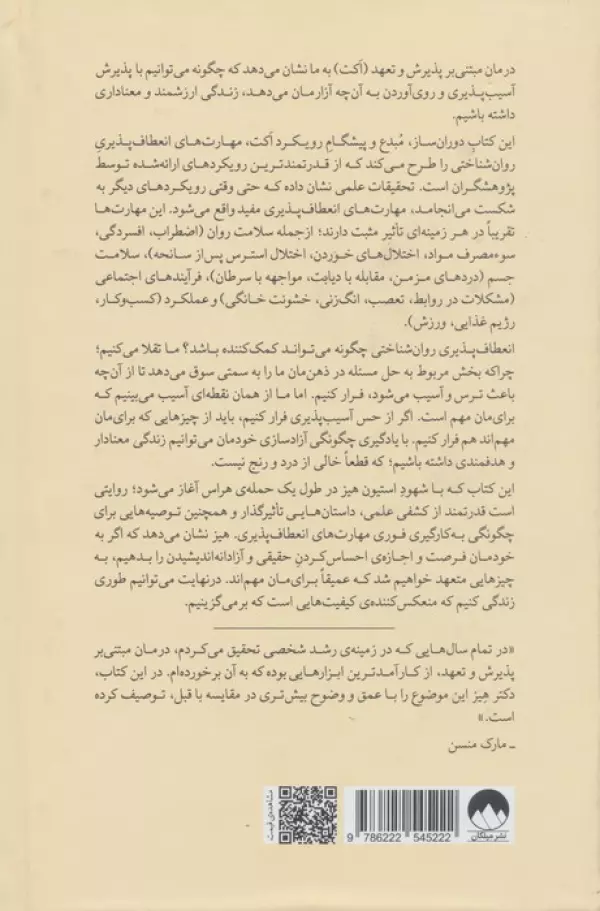 درمان مبتنی‌بر پذیرش و تعهد (اَکت) به ما نشان می‌دهد که چگونه می‌توانیم با پذیرش
آسیب‌پذیری و روی‌آوردن به آن‌چه آزارمان می‌دهد، زندگی ارزشمند و معناداری
داشته باشیم.
این کتابِ دوران‌ساز، مُبدِع و پیشگام رویکرد اَکت، مهارت‌های انعطاف‌پذیریِ
روان‌شناختی را طرح می‌کند که از قدرتمندترین رویکردهای ارائه‌شده توسط
پژوهشگران است. تحقیقات علمی نشان داده که حتی وقتی رویکردهای دیگر به
شکست می‌انجامد، مهارت‌های انعطاف‌پذیری مفید واقع می‌شود. این مهارت‌ها
تقریباً در هر زمینه‌ای تأثیر مثبت دارند؛ ازجمله سلامت روان (اضطراب، افسردگی،
سوءمصرف مواد، اختلال‌های خوردن، اختلال استرس پس‌از سانحه)، سلامت
جسم (دردهای مزمن، مقابله با دیابت، مواجهه با سرطان)، فرآیندهای اجتماعی
(مشکلات در روابط، تعصب، انگ‌زنی، خشونت خانگی) و عملکرد (کسب‌وکار،
رژیم غذایی، ورزش).
انعطاف‌پذیری روان‌شناختی چگونه می‌تواند کمک‌کننده باشد؟ ما تقلا می‌کنیم؛
چراکه بخش مربوط به حل مسئله در ذهن‌مان ما را به سمتی سوق می‌دهد تا از آن‌چه
باعث ترس و آسیب می‌شود، فرار کنیم. اما ما از همان نقطه‌ای آسیب می‌بینیم که
برای‌مان مهم است. اگر از حس آسیب‌پذیری فرار کنیم، باید از چیزهایی که برای‌مان
مهم‌اند هم فرار کنیم. با یادگیری چگونگی آزادسازی خودمان می‌توانیم زندگی معنادار
و هدفمندی داشته باشیم؛ که قطعاً خالی از درد و رنج نیست.
این کتاب که با شهودِ استیون هیز در طول یک حمله‌ی هراس آغاز می‌شود؛ روایتی
است قدرتمند از کشفی علمی، داستان‌هایی تأثیرگذار و همچنین توصیه‌هایی برای
چگونگی به‌کارگیری فوری مهارت‌های انعطاف‌پذیری. هیز نشان می‌دهد که اگر به
خودمان فرصت و اجازه‌ی احساس‌کردنِ حقیقی و آزادانه‌اندیشیدن را بدهیم، به
چیزهایی متعهد خواهیم شد که عمیقاً برای‌مان مهم‌اند. درنهایت می‌توانیم طوری
زندگی کنیم که منعکس‌کننده‌ی کیفیت‌هایی است که برمی‌گزینیم.
«در تمام سال‌هایی که در زمینه‌ی رشد شخصی تحقیق می‌کردم، درمان مبتنی‌بر
پذیرش و تعهد، از کارآمدترین ابزارهایی بوده که به آن برخورده‌ام. در این کتاب،
دکتر هِیز این موضوع را با عمق و وضوح بیش‌تری در مقایسه با قبل، توصیف کرده
است.»
ـ مارک منسن
مشاهده‌ی قیمت
9 786222 545222
نشر میلکان